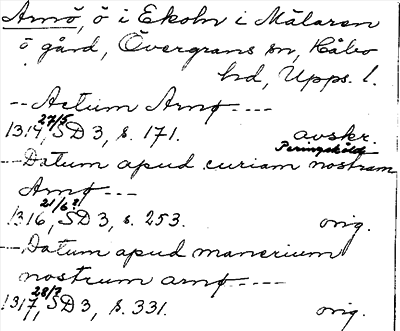 Arnö, ö i Ekoln i Mälaren
o gård, Övergrans sn, Håbo
hd, Upps. l.
-- Actum Arnø ----
1314 27/5, SD 3, s. 171. avskr.
Peringskiöld
--- Datum apud curiam nostram
Arnø ---
1316 21/6?, SD 3, s. 253. orig.
--- Datum apud manerium
nostrum arnø ----
1317 28/7, SD 3, s. 331. orig.